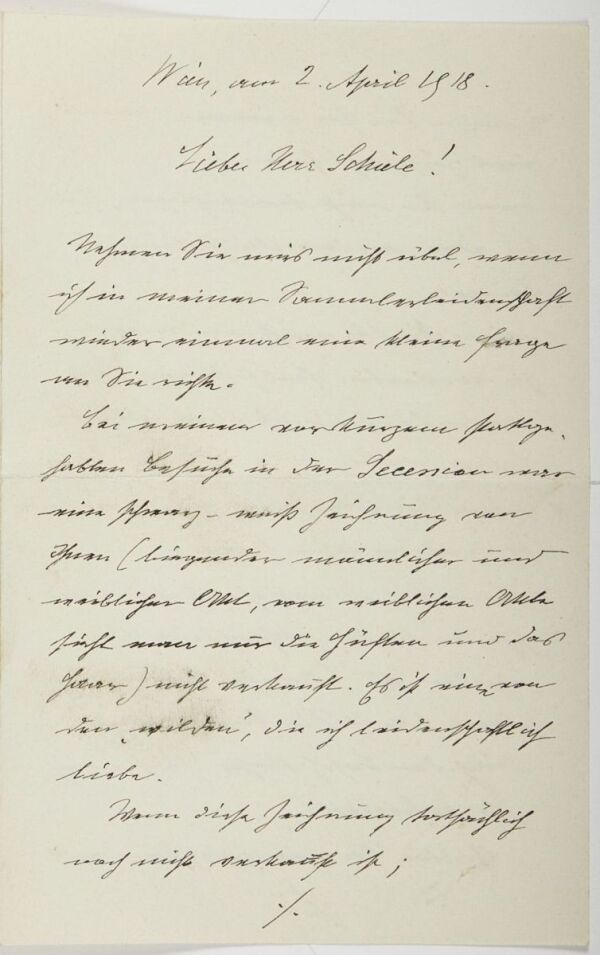 Wien, am 2. April 1918.
Lieber Herr Schiele!
Nehmen Sie mirs nicht übel, wenn
ich in meiner Sammlerleidenschaft
wieder einmal eine kleine Frage
an Sie richte.
Bei meinem vor kurzem stattge-
habten Besuche in der Secession war
eine schwarz-weiß Zeichnung von
Ihnen (liegender männlicher und
weiblicher Akt, vom weiblichen Akte
sieht man nur die Hüften und das
Haar) nicht verkauft. Es ist eine von
den „wilden", die ich leidenschaftlich
liebe.
Wenn diese Zeichnung tatsächlich
noch nicht verkauft ist;
./.